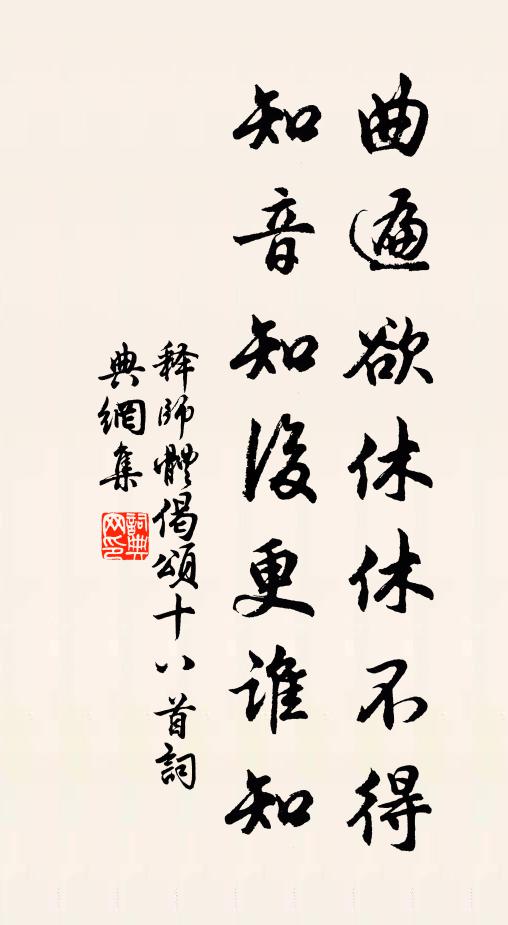 曲遍欲休休不得
知音知後更谁知
释師體偈頌十八首詞
典網集
詞典
网印